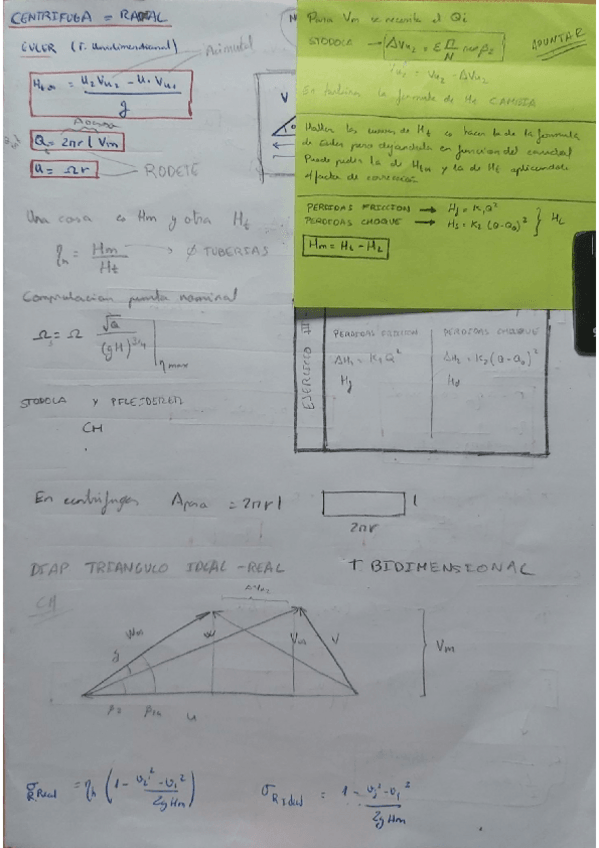 CENTRIFUGA = RADIAL
EULER (T. Unidimensional)
Acimutal
H_t,∞ = (u₂ V_u₂ - u₁ V_u₁) / g
Q = 2πr l V_m
u = Ωr
RODETE
Una cosa es Hm y otra Ht
η_h = Hm / Ht → ∅ TUBERIAS
Comprobacion punto nominal
Ω_s = Ω √Q / (gH)^3/4 | η max
STODOLA Y PFLEIDERER
CH
Para Vm se necesita el Qi
STODOLA → ΔVu₂ = ε Ω/N
APUNTAR
= Vu₂ - ΔVu₂
En turbinas la formula de Ht CAMBIA
Hallar las curvas de Ht es hacer la de la formula
de Euler pero dejandola en funcion del caudal
Puede pedir la de Ht∞ y la de Ht aplicandole
el factor de correccion
PERDIDAS FRICCION → Hf = K₁Q²
PERDIDAS CHOQUE → Hs = K₂ (Q-Q₀)² } HL
Hm = Ht - HL
PERDIDAS FRICCION
ΔH₁ = K₁Q²
Hf
PERDIDAS CHOQUE
ΔH₂ = K₂(Q-Q₀)²
EJERCICIO
En centrifugas Apasa = 2πr l
l
2πr
DIAP TRIANGULO IDEAL-REAL T BIDIMENSIONAL
CH
ΔVu₂
W∞
W
Vm
V
Vm
β₂
u
σ_R Real = η_h (1 - (v₂² - v₁²) / 2gHm)
σ_R ideal = 1 - (v₂² - v₁²) / 2gHm